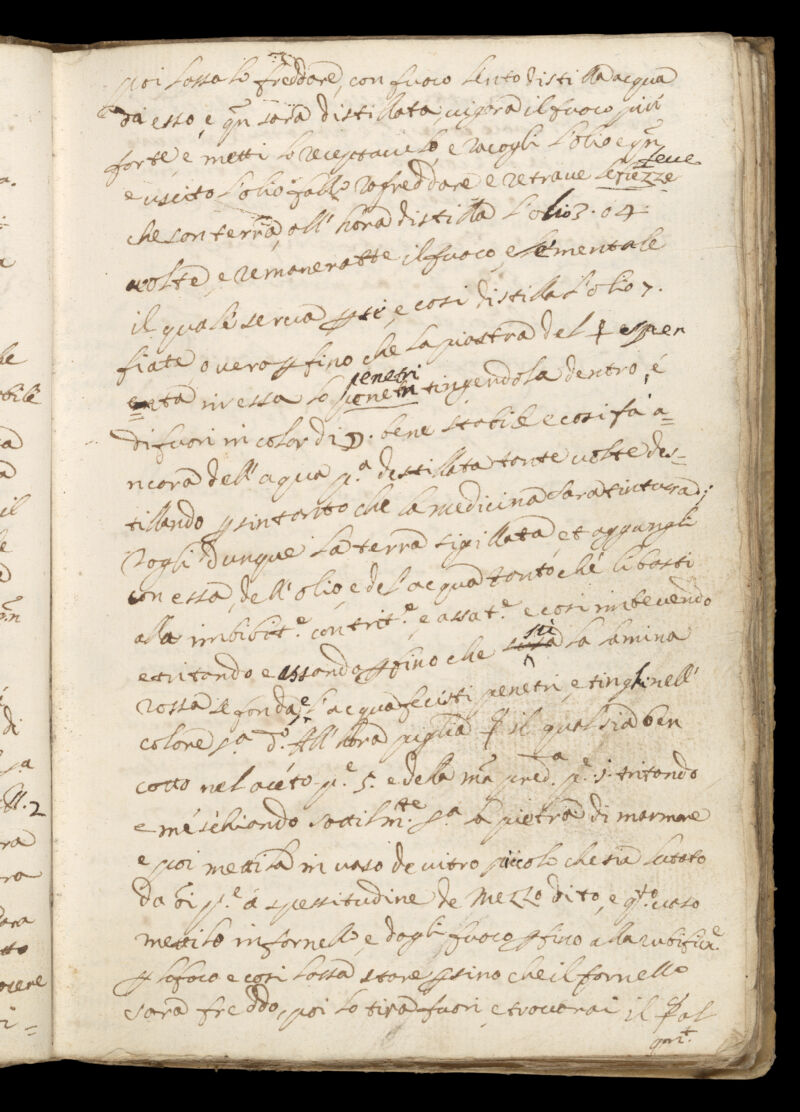 poi lassalo freddare, con fuoco lento distilla acqua
da esso, e qn sarà distillata, vigora il fuoco più
forte, e metti lo receptacolo, e racogli l'olio e qn
e uscito l'olio fallo rafreddare e retrave le fezze fecce
che son terra, all' hora distilla l'olio 3. o 4
volte, e remaneratte il fuoco elementale
il quale serva p te, e cosi distilla l'olio 7.
fiate overo p fino che la piastra del ☿ espen
enta in essa lo penetri tingendola dentro, é
di fuori in color di ☽. bene stabile e cosi fà a=
ncora dell' aqua p.ª destillata tante volte des=
tillando p sin tanto che la medicina sarà tintura;
Togli dunque la terra sigillata, et aggungli
con essa, dell' olio, e del acqua tanto che li basti
alla imbibit.e contrit.e, e assat.e e cosi imbevendo
e tritando e assando p fino che sù la lamina
rossa se fonda, e l'acqua fecisti penetri, e tingh nell'
colore s.ª d.º All' hora piglia ☿ il qual sia ben
cotto nel aceto p.e 5. e dela mª. pred.ª p.e 1. tritando
e meschiando sottilm.te s.ª la pietra di marmore
e poi mettila in vaso de vitro picolo che sia lutato
da ōi p.e á spessitudine de mezzo dito, e q.to vaso
mettilo in fornello, e dagli fuoco p fino alla rubificae
p lo foco e cosi lassa stare p sino che il fornello
sarà freddo, poi lo tira fuori, e trovarai il ☿ al